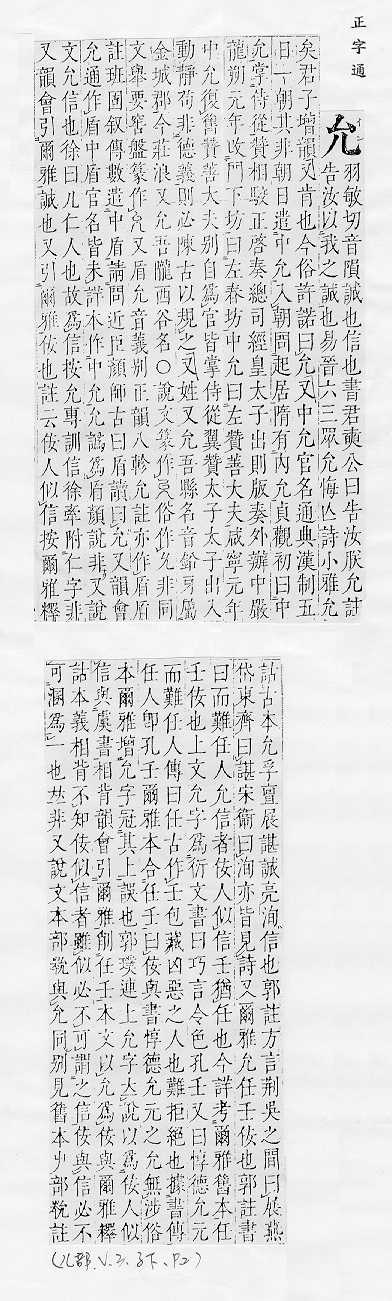 正字通
允
羽敏切音隕誠也信也書君奭公曰告汝朕允註
告汝以我之誠也易晉六三眾允悔亡詩小雅允
矣君子增韻又肯也今俗許諾曰允又中允官名通典漢制五
日一朝其非朝日遣中允入朝問起居隋有內允貞觀初曰中
允掌侍從贊相駮正啓奏總司經皇太子出則版奏外辦中嚴
龍朔元年改門下坊曰左春坊中允曰左贊善大夫咸寧元年
中允復舊贊善大夫別自爲官皆掌侍從翼贊太子太子出入
動靜苟非德義則必陳古以規之又姓又允吾縣名音鉛牙屬
金城郡今莊浪又允吾隴西谷名○說文篆作 俗作 非同
文舉要 盤篆作 又盾允音義別正韻八軫允註亦作盾
註班固叙傳數遣中盾請問近臣顏師古曰盾讀曰允又韻會
允通作盾中盾官名皆未詳本作中允允譌爲盾顏說非又說
文允信也徐曰儿仁人也故爲信按允專訓信徐牽附仁字非
又韻會引爾雅誠也又引爾雅佞也註云佞人似信按爾雅釋
詁古本允孚亶展諶誠亮洵信也郭註方言荆吳之間曰展燕
岱東齊曰諶宋衞曰洵亦皆見詩又爾雅允任壬佞也郭註書
曰而難任人允信者佞人似信壬猶任也今詳考爾雅舊本任
壬佞也上文允字爲衍文書曰巧言令色孔壬又曰惇德允元
而難任人傳曰任古作壬包藏凶惡之人也難拒絕也據書傳
任人卽孔壬爾雅本合任壬曰佞與書惇德允元之允無涉俗
本爾雅增允字冠其上誤也郭璞連上允字 說以爲佞人似
信與虞書相背韻會引爾雅削任壬本文以允爲佞與爾雅釋
詁本義相背不知佞似信者雖似必不可謂之信佞與信必不
可溷爲一也𠀤非又說文本部 與允同別見舊本屮部 註
（儿部、V.2、子下、P2）